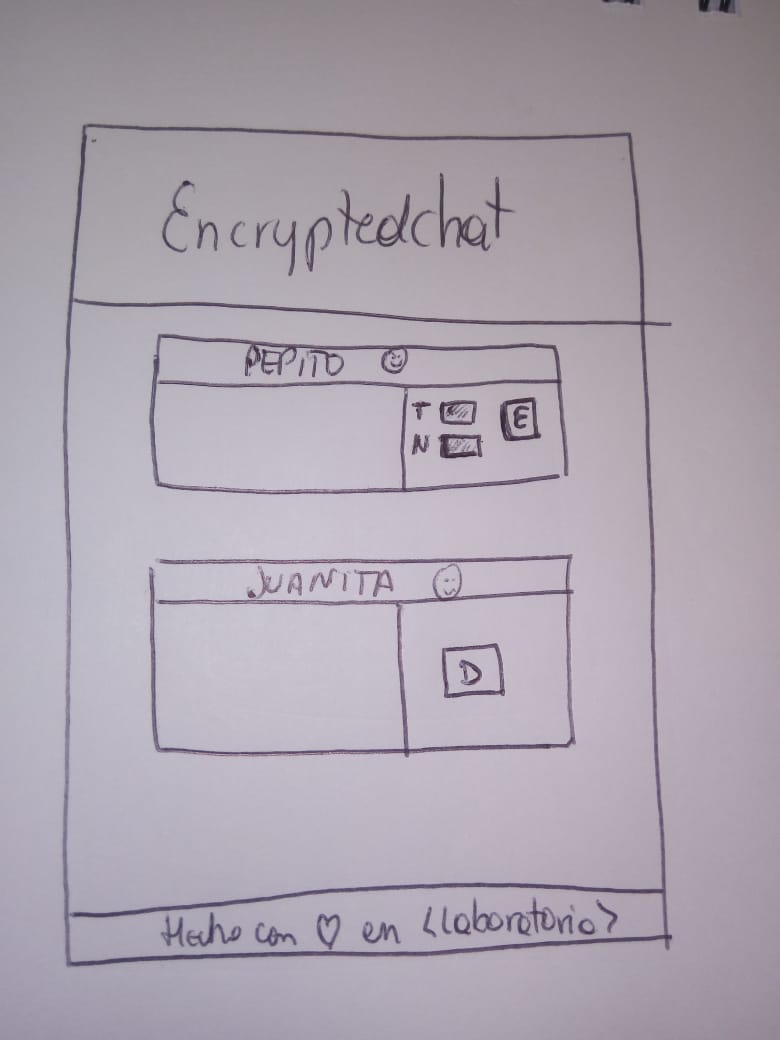 Encryptedchat
PEPITO ☺
T
E
N
JUANITA ☺
D
Hecho con ♡ en <Laboratoria>